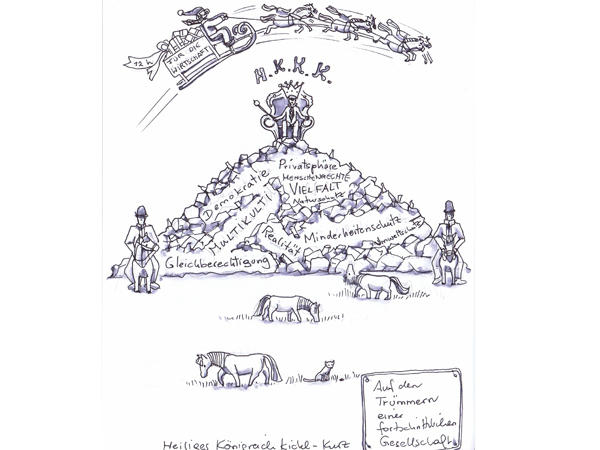 12h
FÜR DIE
WIRTSCHAFT
H.K.K.K.
Demokratie
MULTIKULTI
Privatsphäre
MENSCHENRECHTE
VIELFALT
Naturschutz
Realität
Minderheitenschutz
Umweltschutz
Gleichberechtigung
Auf den
Trümmern
einer
fortschrittlichen
Gesellschaft
Heiliges Königreich Kickl-Kurz